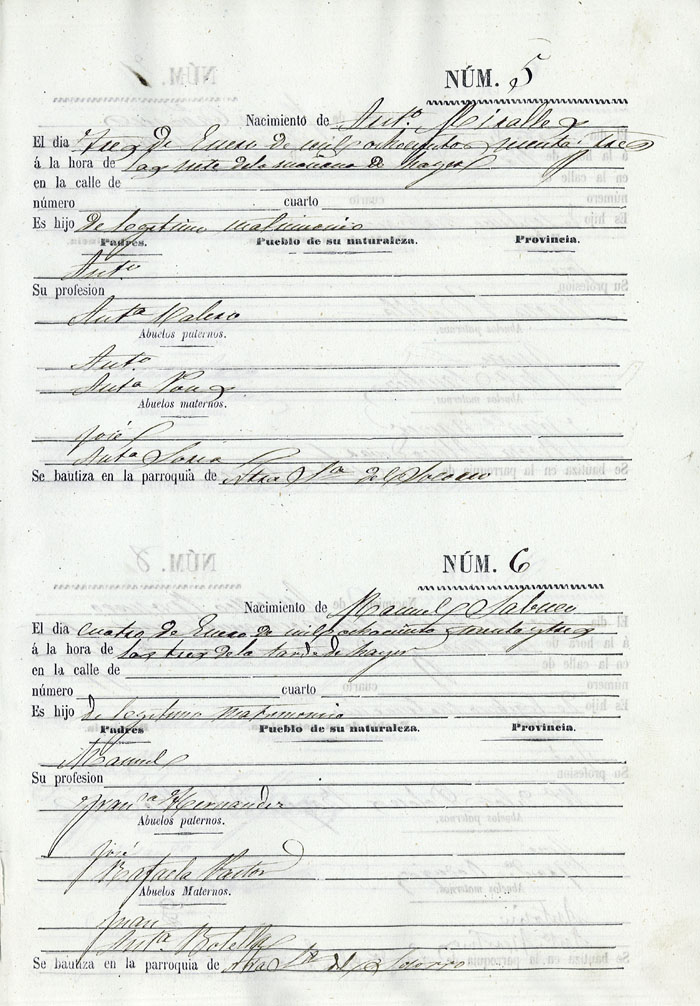 NÚM. 5
Nacimiento de Ant.º Miralles
El dia Tres de Enero de mil ochocientos y tres
á la hora de las siete de la mañana de hayer
en la calle de
número cuarto
Es hijo de legitimo matrimonio
Padres. Pueblo de su naturaleza. Provincia.
Ant.º
Su profesion
Ant.ª Malero
Abuelos paternos.
Ant.º
Ant.ª Pons
Abuelos maternos.
José
Ant.ª Soria
Se bautiza en la parroquia de Ntra Sra del Socorro
NÚM. 6
Nacimiento de Manuel
El dia cuatro de Enero de mil ochocientos y tres
á la hora de las tres de la tarde de hayer
en la calle de
número cuarto
Es hijo de legitimo matrimonio
Padres Pueblo de su naturaleza. Provincia.
Manuel
Su profesion
Fran.ca Hernandez
Abuelos paternos.
José
Rafaela Pastor
Abuelos Maternos.
Juan
Ant.ª Botella
Se bautiza en la parroquia de Ntra Sra del Socorro